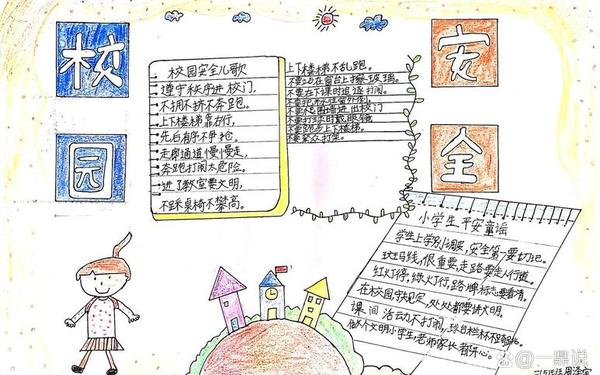 校
园
安
全
校园安全儿歌
遵守秩序进校门,
不拥不挤不奔跑。
上下楼梯靠右行,
先后有序不争抢,
走廊通道慢慢走,
奔跑打闹太危险。
进了教室要文明,
不踩桌椅不攀高。
上下楼梯不乱跑。
不要在窗台上擦玻璃。
不要在下课时追逐打闹。
不要跑步上下楼梯。
不要聚众打架。
小学生平安童谣
学生上学别调皮,安全第一要切记。
斑马线,很重要,走路要走人行道。
红灯停,绿灯行,路牌标志要看清。
在校园守规定,处处都要讲文明
课间活动不打闹,
做个文明小学生,老师家长都开心。
一鼎说